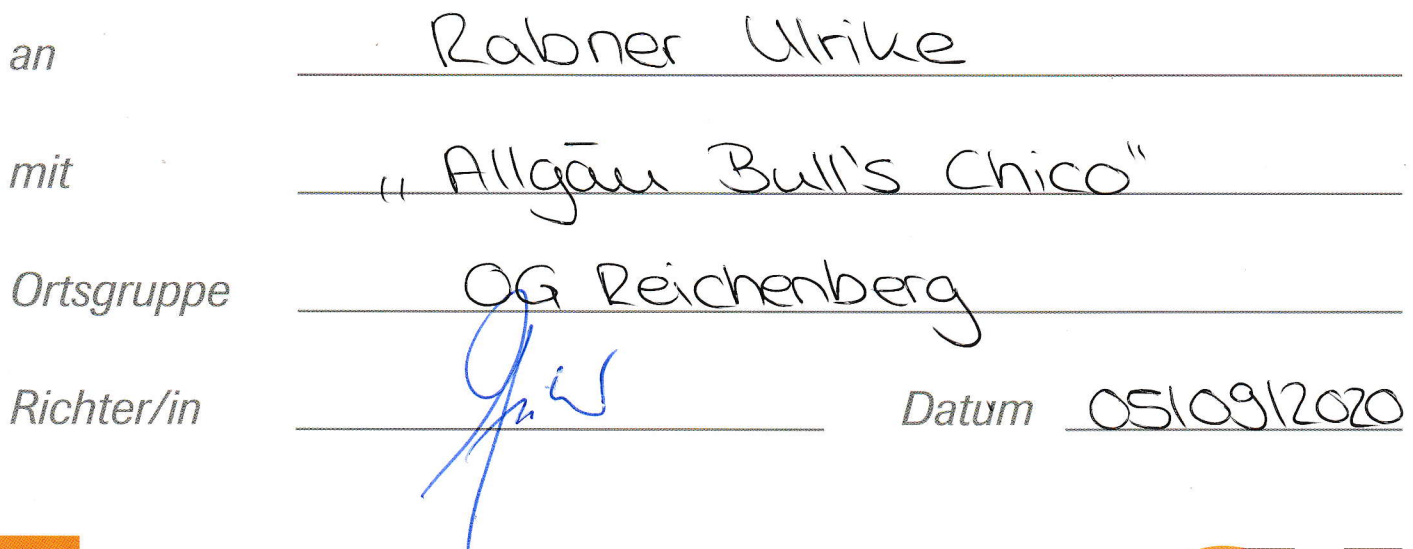 an Rabner Ulrike
mit „Allgäu Bull's Chico"
Ortsgruppe OG Reichenberg
Richter/in Datum 05/09/2020